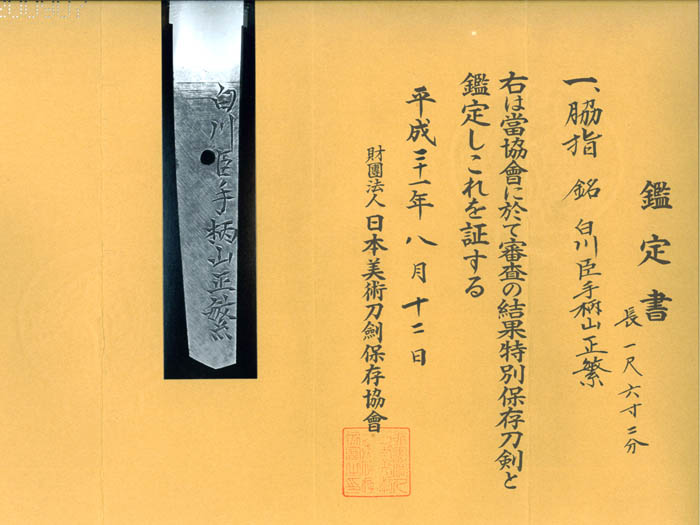 鑑定書
一、脇指 銘 白川臣手柄山正繁
長一尺六寸二分
右は當協會に於て審査の結果特別保存刀剣と
鑑定しこれを証する
平成二十一年八月十二日
財團法人日本美術刀劍保存協會
白川臣手柄山正繁